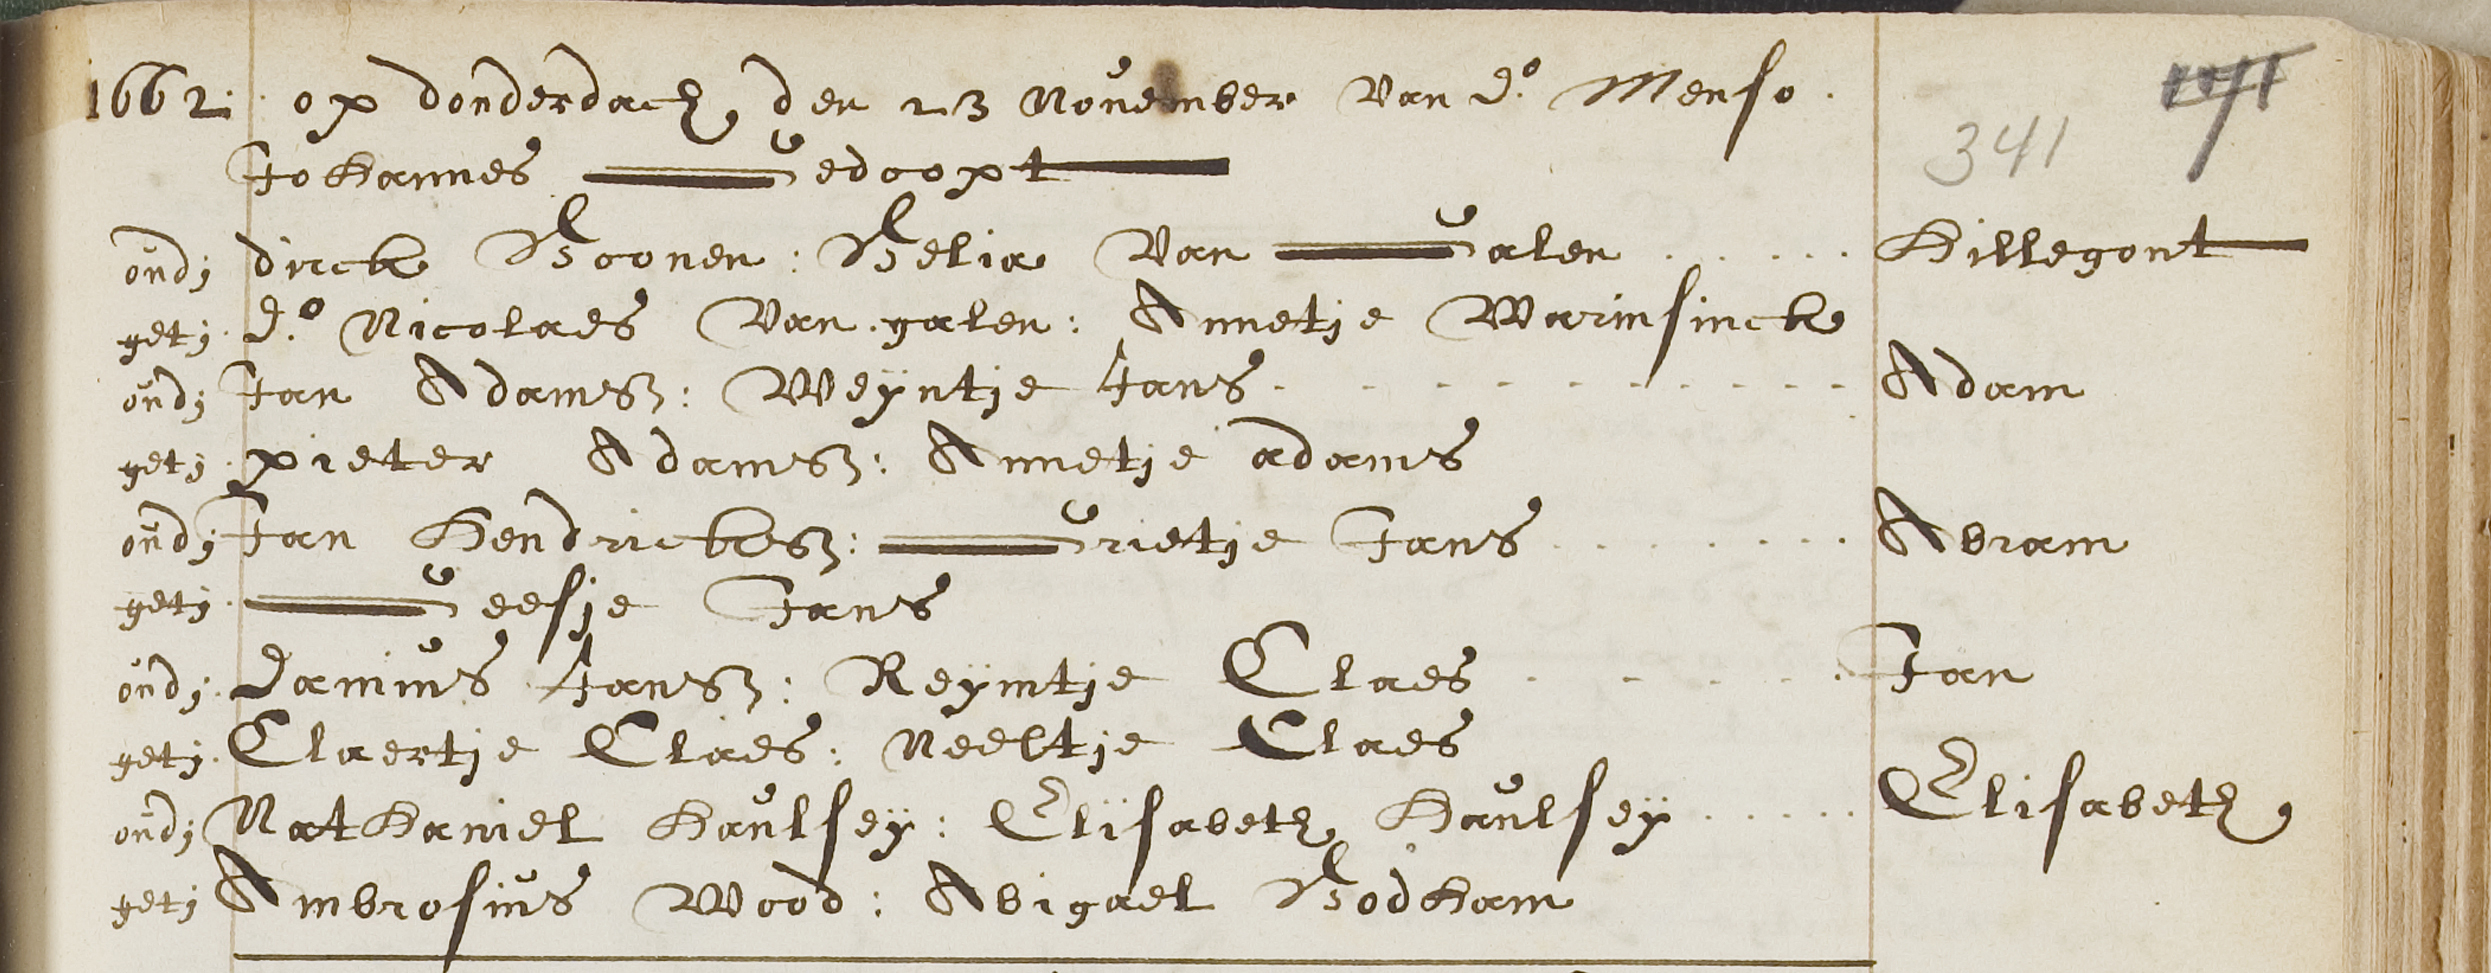 1662: op donderdach den 23 November van d.o Menso.
Johannes Gedoopt
341
oudj dirck Boonen: Belia van Galen ..... Hillegont
getj. d.o Nicolaes van galen: Annetje Warinsinck
oudj Jan Adamsz: Weÿntje Jans ........... Adam
getj. pieter Adamsz: Annetje adams
oudj Jan Hendricksz: Grietje Jans ....... Abram
getj. Geesje Jans
oudj. Danius Jansz: Reÿmtje Claes ...... Jan
getj. Claertje Claes: Neeltje Claes
oudj Nathaniel Haulseÿ: Elÿsabeth Haulseÿ ..... Elisabeth
getj Ambrosius Wood: Abigael Bodham